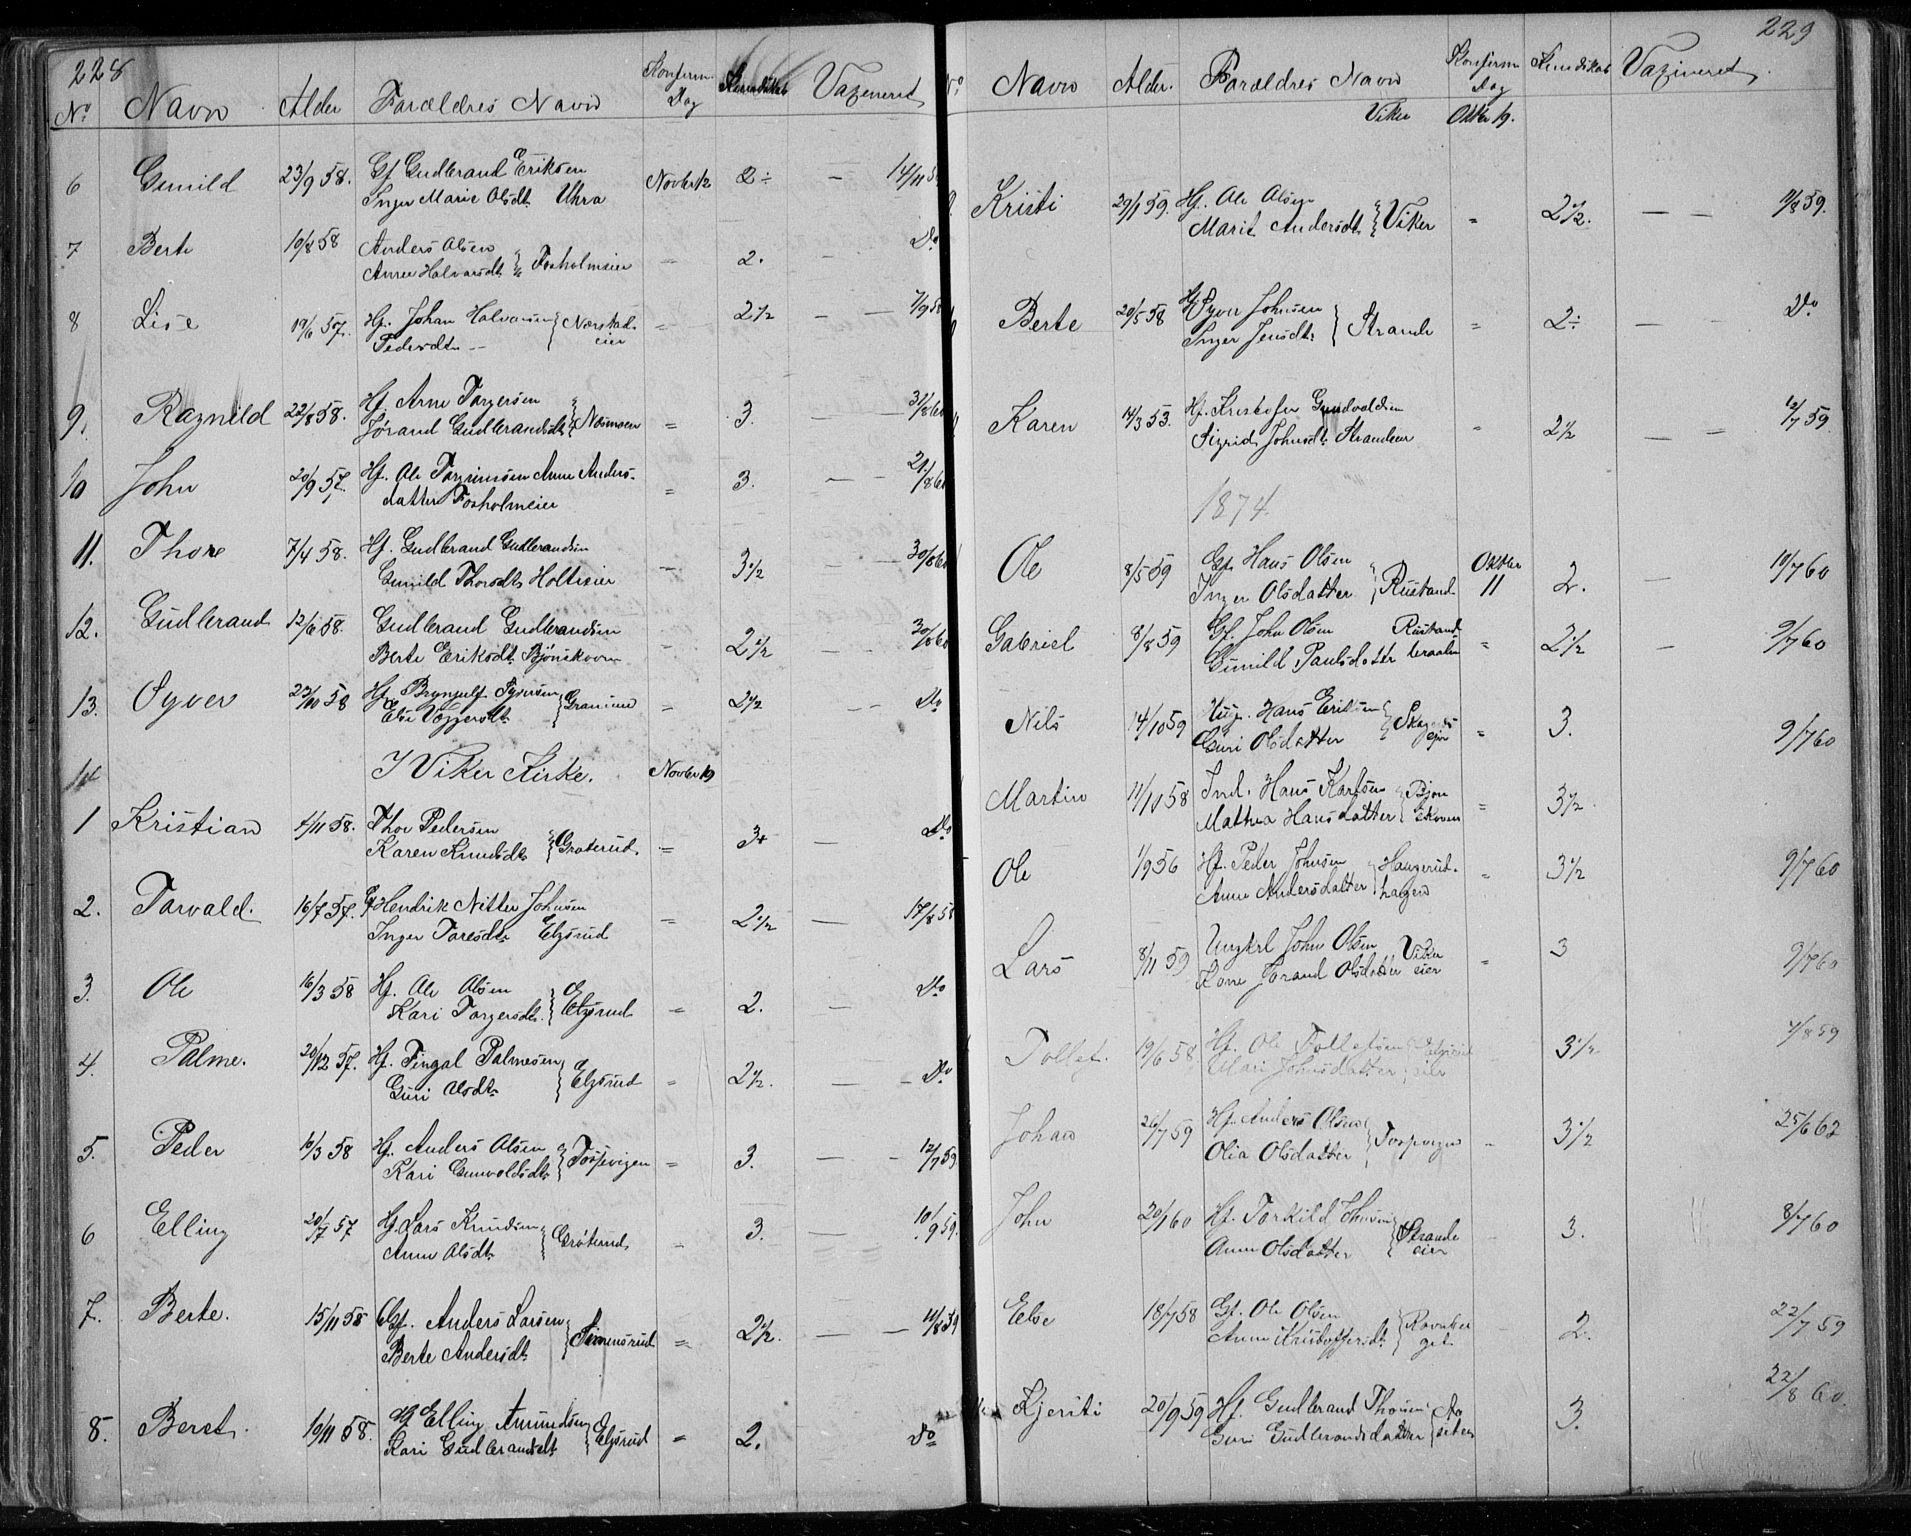 228
No Navn Alder Forældres Navn Konfirm. Dag Kundskab Vazineret
6 Gunild 23/9 58. Gf Gudbrand Eriksen Novber 12 2÷ — 14/11 5
Inger Marie Olsdt. Uhra
7 Berte 10/8 58 Anders Olsen
Anne Halvorsdt. Fosholmeier 2. Do
8 Lise 19/6 57. Hf. Johan Halvorsen Nærstad-
Pedersdt. eier 2 1/2 — 7/9 58
9. Ragnild 22/8 58. Hf. Arne Torgersen
Jørand Gudbrandsdt. Næsmoen 3. — 31/8 60
10 John 20/9 57. Hf. Ole Torgrimsen Anne Anders-
datter Fosholmeier 3. — 21/8 60
11. Thore 7/4 58. Hf. Gudbrand Gudbrandsen
Gunild Thorsdt. Holteeier 3 1/2 — 30/8 60
12. Gudbrand 12/6 58. Gudbrand Gudbrandsen
Berte Eriksdt. Bjöniskoven 2 1/2 — 30/8 60
13. Syver 23/10 58 Hf. Bryngulf Syversen
Else Viggersdt. 2 1/2 — Do
14 I Viker Kirke. Novber 19
1 Kristian 4/11 58. Thov Pedersen
Karen Knudsdt. Groterud. 3+ — Do
2. Torvald. 16/7 57. Gf Hendrik Nitter Johnsen
Inger Toresdt. Elgsrud 2 1/2 — 17/8 58
3. Ole 16/3 58 Hf. Ole Olsen
Kari Torgersdt. Elgsrud 2. — Do
4. Palme. 20/12 57. Hf. Fingal Palmesen
Guri Olsdt. Elgsrud 2 1/2. — Do
5. Peder 10/3 58 Hf. Anders Olsen
Kari Gunvoldsdt. Tospevigen 3. — 12/7 59.
6 Elling 20/7 57 Hf. Lars Knudsen
Anne Olsdt. Gröterud 3. — 10/9 59.
7. Berte. 15/11 58 Gf. Anders Larsen
Berte Andersdt. Simensrud 2 1/2. — 11/8 59
8. Beret. 10/11 58. Hf Elling Amundsen
Kari Gudbrandsdt. Elgsrud 2. Do
229
No Navn Alder. Forældres Navn Konfirm Dag Kundskab Vazineret.
Viker Oktbr 19.
Kristi 29/1 59. Hf. Ole Olsen
Marit Andersdt. Viker 2 1/2. — — 11/8 59.
Berte 20/5 58 Hf Syver Johnsen
Inger Jensdt. Strande 2÷ — — Do
Karen 14/3 53. Hf. Kristofer Gundvaldsen
Sigrid Johnsdt. Strandeeier 2 1/2 — — 12/7 59
1874.
Ole 8/5 59 Gf. Hans Olsen
Inger Olsdatter Rustand Oktbr 11 2. — 10/7 60
Gabriel 8/8 59 Gf. John Olsen Rustand-
Gunild Paulsdatter braaten 2 1/2 — 9/7 60
Nils 14/10 59 Hans Eriksen
Guri Olsdatter 3. 9/7 60
Martin 11/11 58 Ind. Hans Karlsen Bjøni
Mathea Hansdatter skoven 3 1/2
Ole 1/9 56 Hf. Peder Johnsen Haugerud-
Anne Andersdatter hagen 3 1/2 9/7 60
Lars 8/11 59 Ungkrl John Olsen Viker
Kone Jorand Olsdatter eier 3 9/7 60
Tollef. 19/6 58 Hf. Ole Tollefsen Elgsrud
Mari Johnsdatter eier 3 1/2 4/8 59
Johan 26/7 59 Hf. Anders Olsen
Olia Olsdatter Tospevigen 3 1/2 25/6 62
John 20/1 60 Hf. Torkild Johnsen Strande
Anne Olsdatter eier 3. 8/7 60
Else 18/7 58 Gf. Ole Olsen
Anne Kristoffersdt. 2. 22/7 59
Kjersti 20/9 59 Hf. Gudbrand Thorsen Aa
Guri Gudbrandsdatter seten 3. 22/8 60.